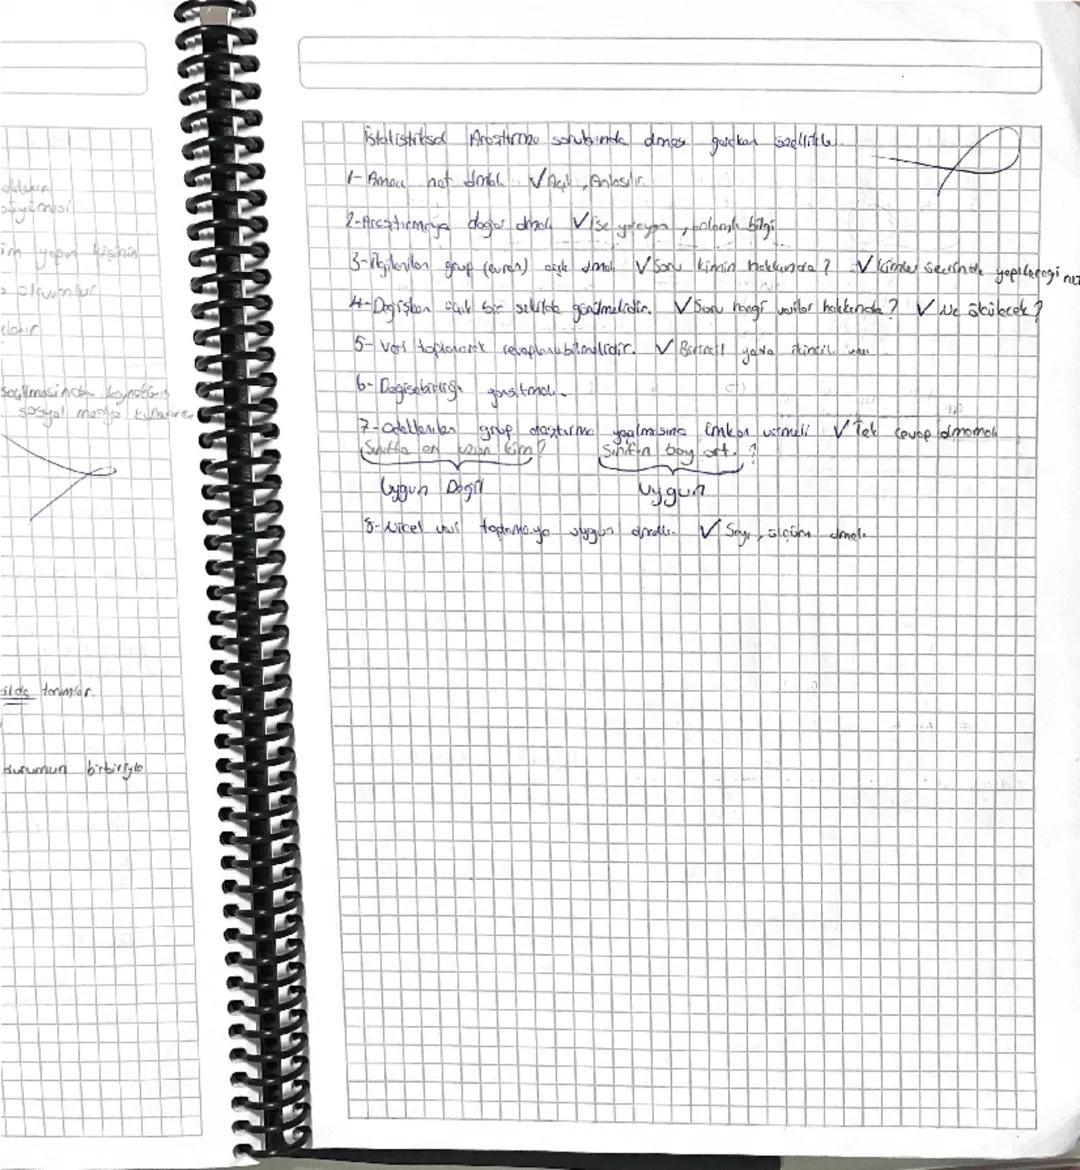 oldukça
im yapan kişinin
e olkumlur
seçilmesinde kaynakların
sosyal medya
silde tanımlar.
durumun birbiriyle
İstatistiksel Araştırma sorusunda olması gereken özellikle
1- Amacı net olmalı ✓ Açık, Anlaşılır.
2- Araştırmaya değer olmalı ✓ İşe yarayan, bilgi
3- İlgilenilen grup (evren) açık olmalı ✓ Soru kimin hakkında? ✓ Kimler üzerinde yapılacağı net
4- Değişken açık bir şekilde görülmelidir. ✓ Soru hangi veriler hakkında? ✓ Ne ölçülecek?
5- Veri toplanarak cevaplanabilmelidir. ✓ Birincil yada ikincil veri
6- Değişebirliği göstermeli.
7- Odaklanılan grup araştırma yapılmasına imkan vermeli ✓ Tek cevap olmamalı
Sınıfta en uzun kim? Sınıfın boy ort. ?
Uygun Değil Uygun
8- Nicel veri toplamaya uygun olmalı. ✓ Sayı, ölçüm olmalı.